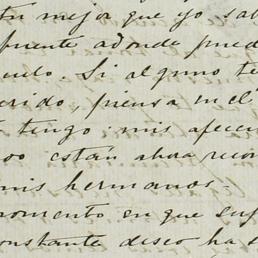 tú mejor que yo sab
fuente adonde pued
uelo. Si alguno te
erido, piensa en el
tengo mis afecci
oo están ahora recon
mis hermanos-
omento en que suf
onstante deseo ha s